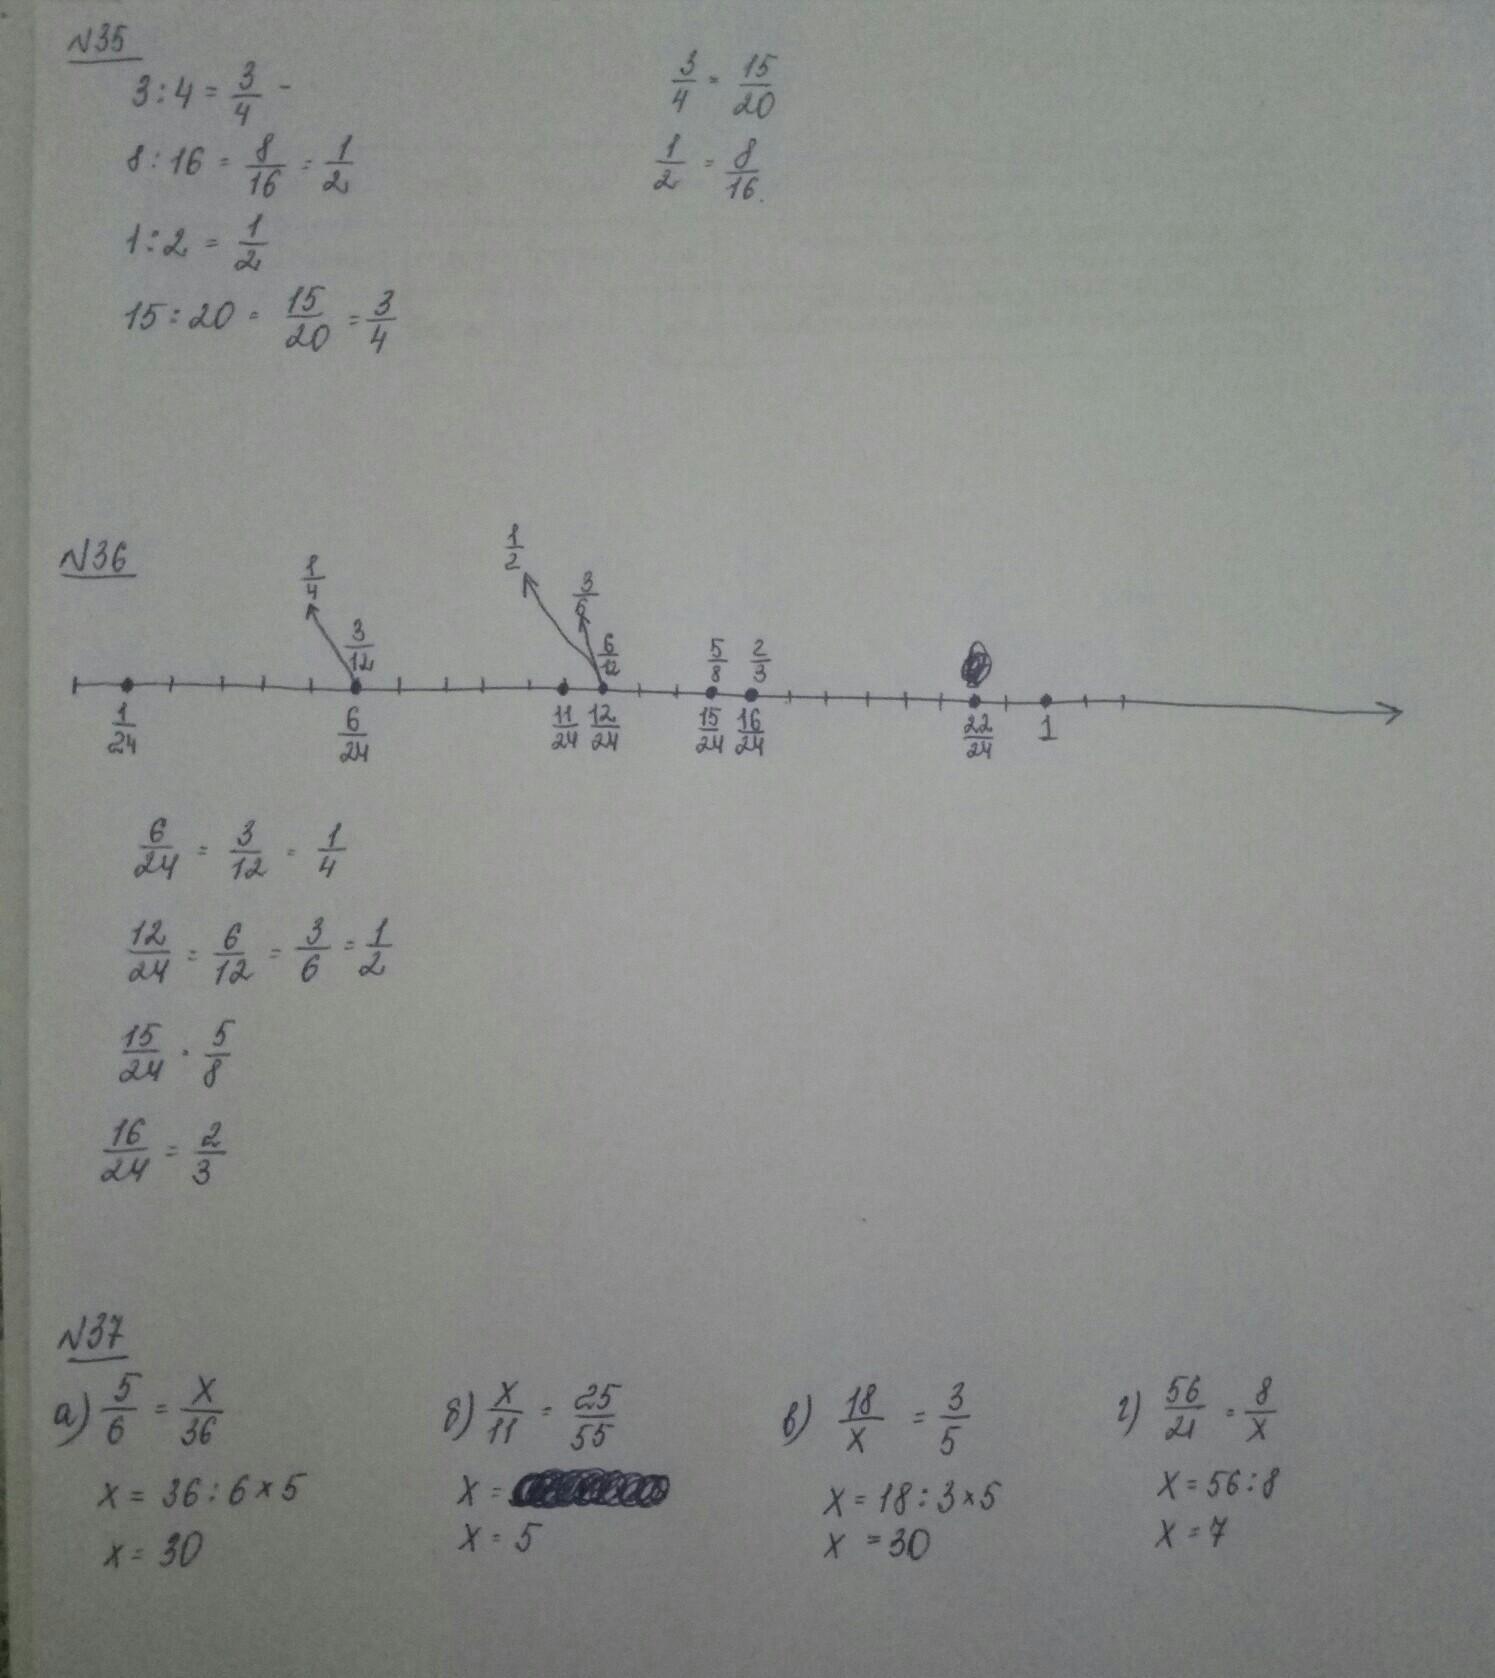 №35
3:4 = 3/4 -
3/4 = 15/20
8:16 = 8/16 = 1/2
1/2 = 8/16.
1:2 = 1/2
15:20 = 15/20 = 3/4
№36
1/4 1/2 3/6
3/12 6/12 5/8 2/3
1/24 6/24 11/24 12/24 15/24 16/24 22/24 1
6/24 = 3/12 = 1/4
12/24 = 6/12 = 3/6 = 1/2
15/24 = 5/8
16/24 = 2/3
№37
а) 5/6 = x/36
x = 36:6×5
x = 30
б) x/11 = 25/55
x =
x = 5
в) 18/x = 3/5
x = 18:3×5
x = 30
г) 56/21 = 8/x
x = 56:8
x = 7